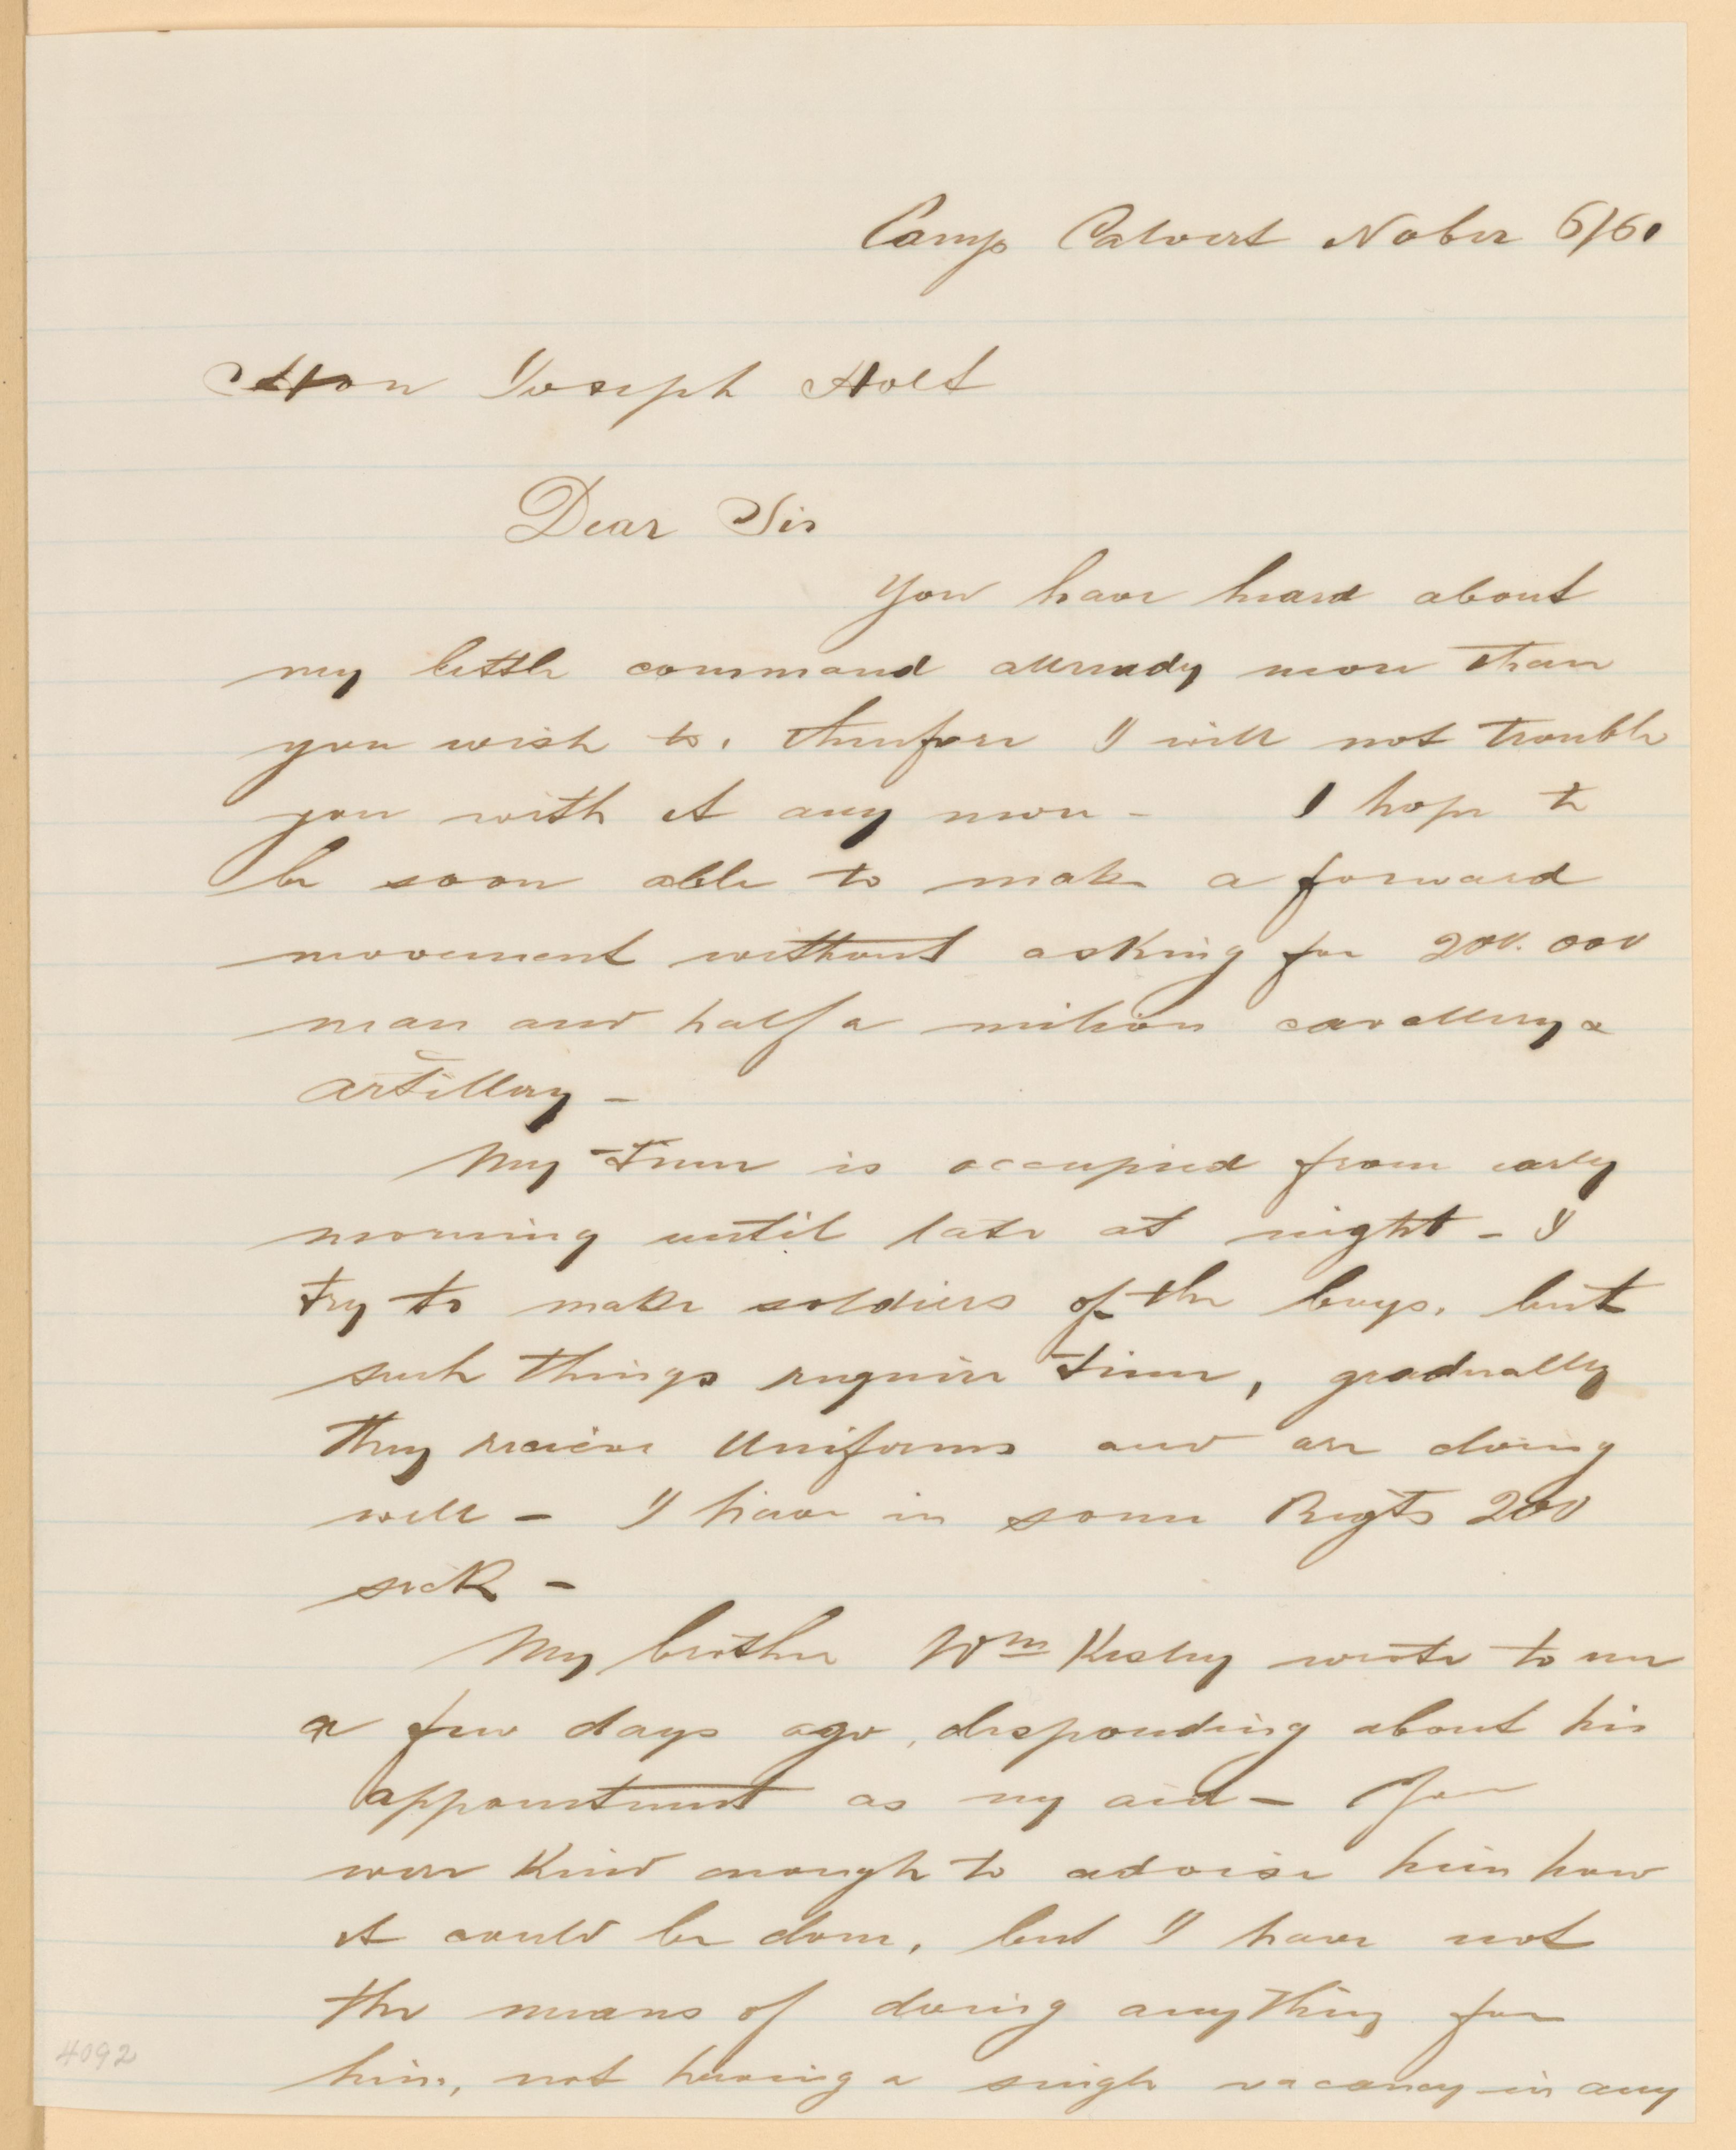 Camp Calvert Nober 6/61
Hon Joseph Holt
Dear Sir
You have heard about
my little command allready more than
you wish to, therefore I will not trouble
you with it any more -     I hope to
be soon able to make a forward
movement without asking for 200.000
man and half a milion cavallery &
artillery -
My time is occupied from early
morning until late at night - I
try to make soldiers of the boys, but
such things require time, gradually
they recieve Uniforms and are doing
well - I have in some Regts 200
sick -
My brother Wm Kesley wrote to me
a few days ago, desponding about his
appointment as my aid - You
were kind enough to advise him how
it could be done, but I have not
the means of doing anything for
him, not having a single vacancy in any
4092